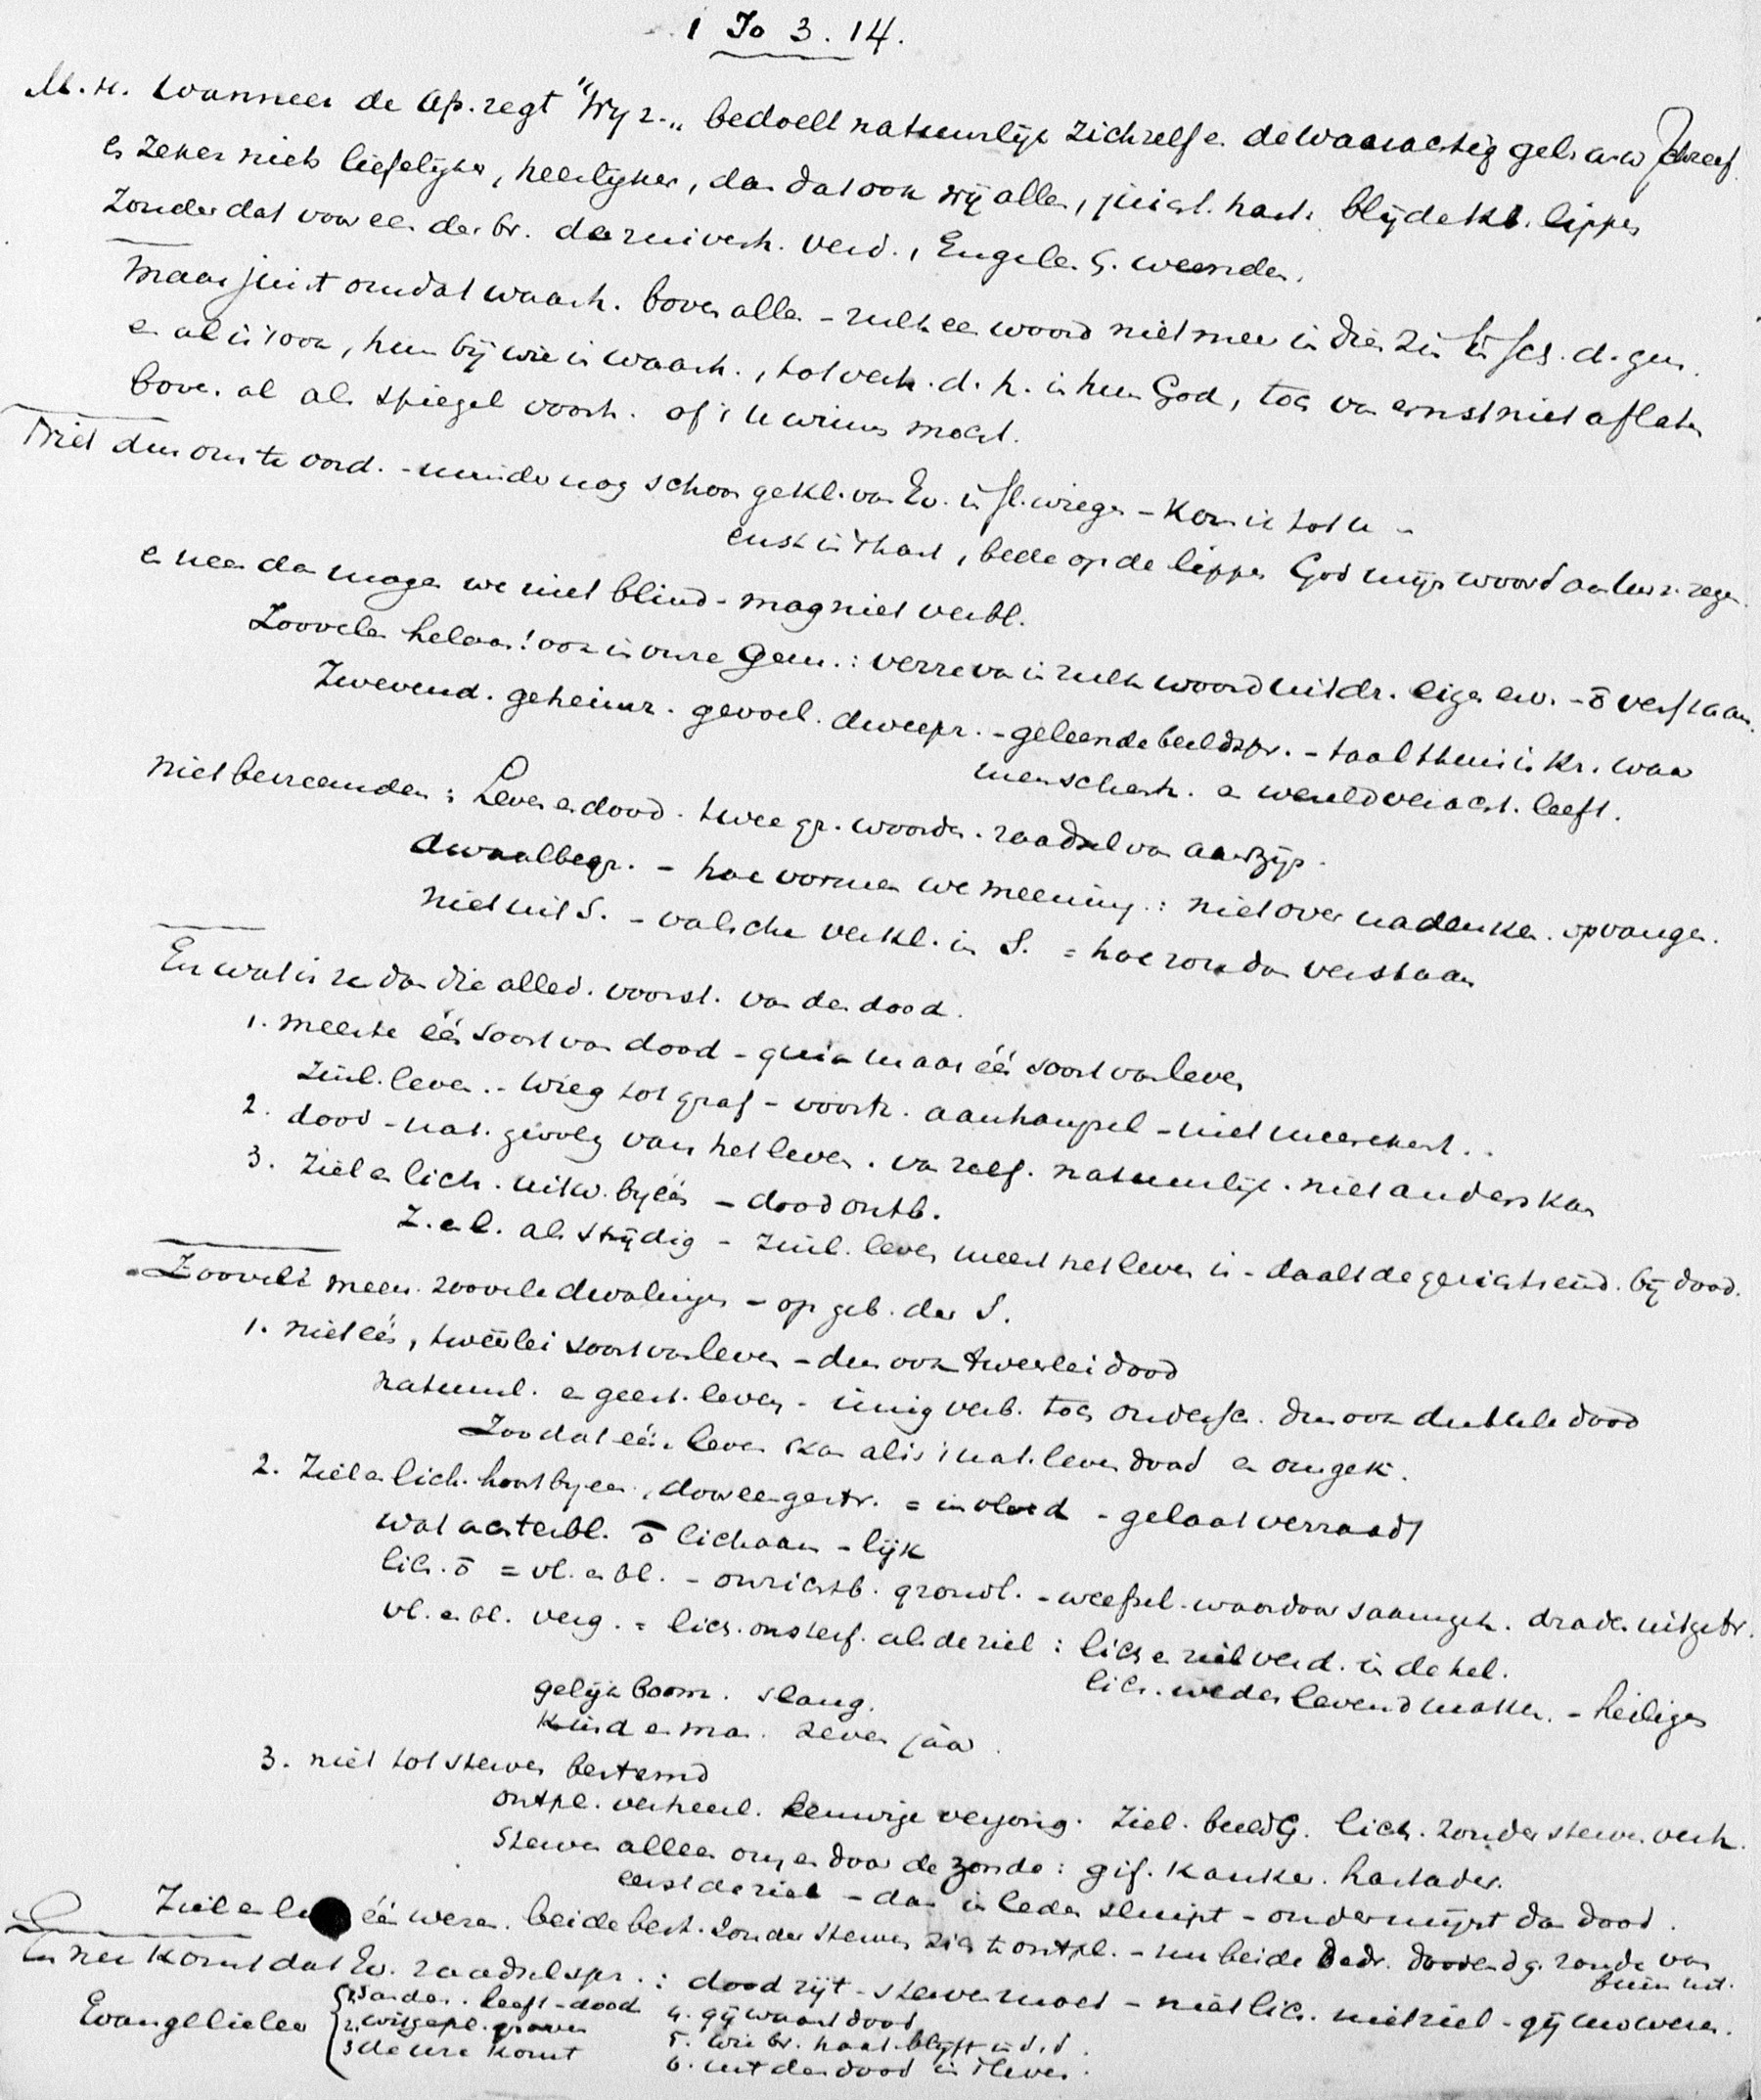 1 Jo 3. 14.
M.H. Wanneer de Ap. zegt "Wy z.„ bedoelt natuurlijk zichzelf e. de waarachtig gel.
is zeker niets liefelyker, heerlyker, dan dat ook wij allen, juich. hart. blijde kl. lippen
Zonder dat voor een der br. de ruivesh. verd., Engelen G. weenden.
Maar juist omdat waarh. boven alles - zulk een woord niet meer in dien zin
en al is 't ook, hun bij wie in waarh., tot verh. d. h. in hun God, toch van ernst niet aflaten
boven al als spiegel voorh. of 't u winnen mocht.
Niet dus om te oord. - minder nog schoon gekl. van Ev. in sl. wiegen - Kom ik tot u -
ernst in 't hart, bede op de lippen God mijn woord aan uw z. zegen.
en neen dan mogen we niet blind - mag niet verbl.
Zoovelen helaas! ook in onze Gem.: verre van in zulk woord uitdr. eigen erv. - ō verstaan.
Zwevend. geheimz. gevoel. dweepz. - geleende beeldspr. - taal thuis in Kr. waar
menschenh. en wereldveracht. leeft.
Niet bevreemden: Leven en dood. twee gr. woorden. raadsel van aanzijn.
dwaalbegr. - hoe vormen we meening: niet over nadenken. opvangen.
Niet uit S. - valsche verkl. in S. = hoe zou dan verstaan
En wat is ze dan die alled. voorst. van den dood.
1. meeste één soort van dood - quia maar één soort van leven
Zinl. leven. - wieg tot graf - voortz. aanhangsel - niet meerekent..
2. dood - nat. gevolg van het leven. van zelf. natuurlijk. niet anders kan
3. Ziel en lich. uitw. byéén - dood ontb.
Z. en l. als strijdig - zinl. leven meest het leven is - daalt de gerichtseind. bij dood.
Zoovele meen. zoovele dwalingen - op geb. der S.
1. niet één, tweëerlei soort van leven - dus ook tweeerlei dood
natuurl. en geest. leven - innig verb. toch ondersch. dus ook dubbele dood
Zoodat één leven kan als is 't nat. leven dood en omgek.
2. Ziel en lich. hoort byeen, dooreengestr. = invloed - gelaat verraadt
wat achterbl. ō lichaam - lijk
lich. ō = vl. en bl. - onzichtb. grondl. - weefsel waardoor saamgeh. draden uitgetr.
vl. en bl. verg. = lich. onsterf. als de ziel: lich en ziel verd. in de hel.
lich. weder levend maken. - heiligen
gelijk boom. slang.
kind en man. zeven jaar.
3. niet tot sterven bestemd
ontpl. verheerl. eeuwige verjong. Ziel. beeld G. lich. zonder sterven verh.
Sterven alleen om en door de zonde: gif. kanker. hartader.
eerst de ziel - dan in leden sluipt - ondermijnt dan dood.
Ziel en één wezen. beide best. zonder sterven zich te ontpl. - nu beide bedr. doodend g. zonde van
binnen uit.
En nu komt dat Ev. raadselspr.: dood zijt - sterven moet - niet lich. niet ziel - gij uw wezen.
Evangelieleer
1. dander. leeft - dood
2. witgepl. graven
3 de ure komt
4. gij waart dood
5. wie br. haat blijft in d. d.
6. uit den dood in 't leven.